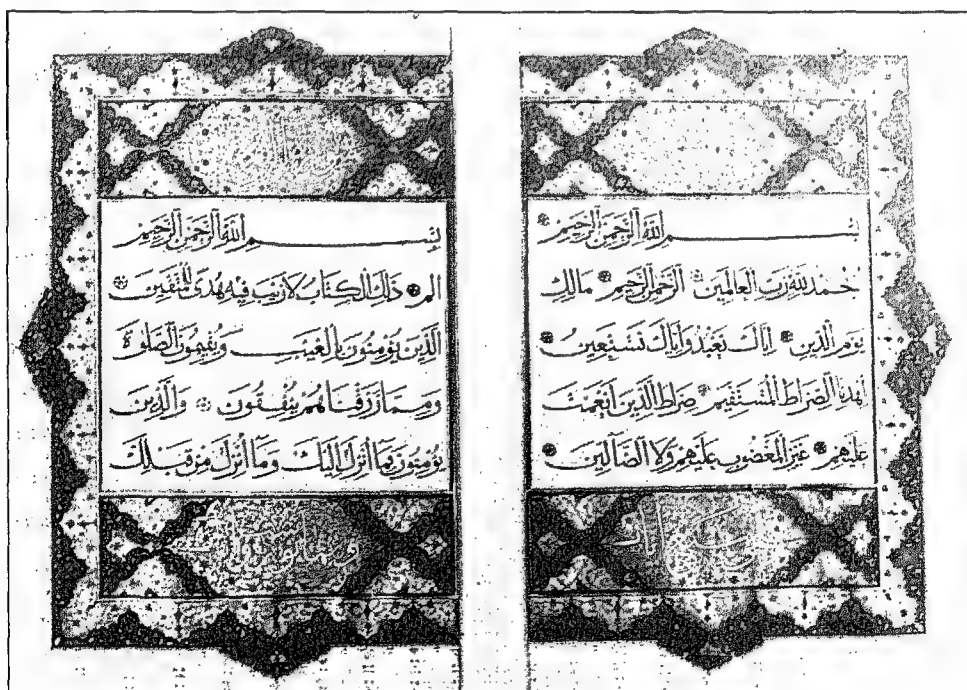 بسم الله الرحمن الرحيم
لحمد لله رب العالمين الرحمن الرحيم مالك
يوم الدين إياك نعبد وإياك نستعين
اهدنا الصراط المستقيم صراط الذين أنعمت
عليهم غير المغضوب عليهم ولا الضالين
بسم الله الرحمن الرحيم
الم ذلك الكتاب لا ريب فيه هدى للمتقين
الذين يؤمنون بالغيب ويقيمون الصلوة
ومما رزقناهم ينفقون والذين
يؤمنون بما أنزل إليك وما أنزل من قبلك